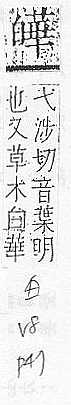 皣
弋涉切音葉明
也又草木白華
白
V8